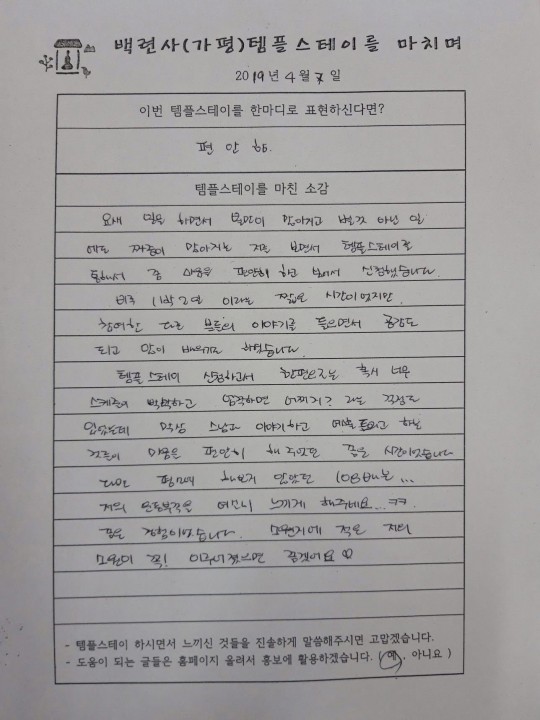 백련사(가평)템플스테이를 마치며
2019년 4월 7일
이번 템플스테이를 한마디로 표현하신다면?
편안함.
템플스테이를 마친 소감
요새 일을 하면서 불만이 많아지고 별것 아닌 일
에도 짜증이 많아지는 저를 보면서 템플스테이를
통해서 좀 마음을 편안히 하고 싶어서 신청했습니다.
비록 1박2일 이라는 짧은 시간이었지만
참여한 다른 분들의 이야기를 들으면서 공감도
되고 많이 배우기도 하였습니다.
템플스테이 신청하고서 한편으로는 혹시 너무
스케줄이 빡빡하고 엄격하면 어쩌지? 라는 걱정도
있었는데 막상 스님과 이야기하고 예불 드리고 하는
것들이 마음을 편안히 해 주었던 좋은 시간이었습니다
다만 평소에 해보지 않았던 108배는...
저의 운동부족을 여실히 느끼게 해주네요...ㅋㅋ.
좋은 경험이었습니다. 소원지에 적은 저의
소원이 꼭! 이루어졌으면 좋겠어요 ♡
- 템플스테이 하시면서 느끼신 것들을 진솔하게 말씀해주시면 고맙겠습니다.
- 도움이 되는 글들은 홈페이지 올려서 홍보에 활용하겠습니다. ( 예 , 아니요 )